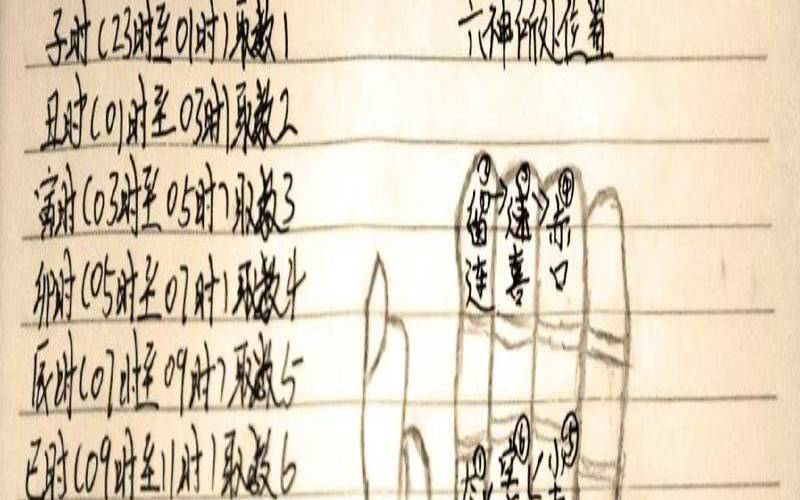 子时(23时至01时)取数1
六神所处位置
丑时(01时至03时)取数2
寅时(03时至05时)取数3
卯时(05时至07时)取数4
辰时(07时至09时)取数5
巳时(09时至11时)取数6
②留连
③速喜
④赤口
①大
⑥空
⑤小吉